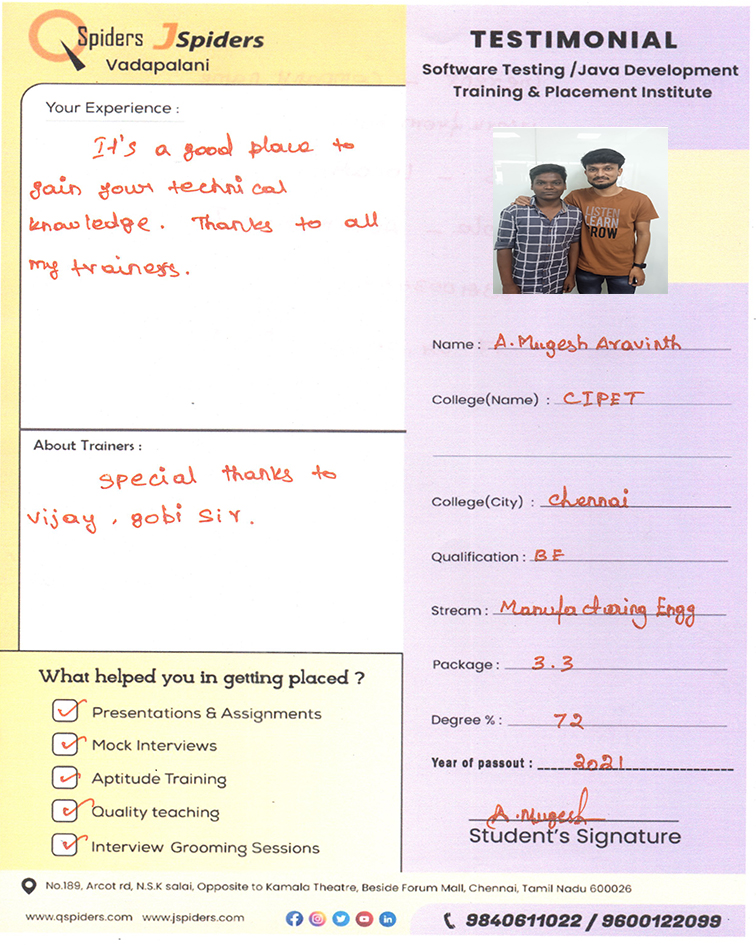 QSpiders JSpiders
Vadapalani
TESTIMONIAL
Software Testing /Java Development
Training & Placement Institute
Your Experience :
It's a good place to
gain your technical
knowledge. Thanks to all
my trainess.
LISTEN
LEARN
GROW
About Trainers :
special thanks to
vijay, gobi sir.
Name : A.Mugesh Aravinth
College(Name) : CIPET
College(City) : chennai
Qualification : BE
Stream : Manufacturing Engg
Package : 3.3
Degree % : 72
Year of passout : 2021
A.Mugesh
Student's Signature
What helped you in getting placed ?
Presentations & Assignments
Mock Interviews
Aptitude Training
Quality teaching
Interview Grooming Sessions
No.189, Arcot rd, N.S.K salai, Opposite to Kamala Theatre, Beside Forum Mall, Chennai, Tamil Nadu 600026
www.qspiders.com www.jspiders.com
9840611022 / 9600122099